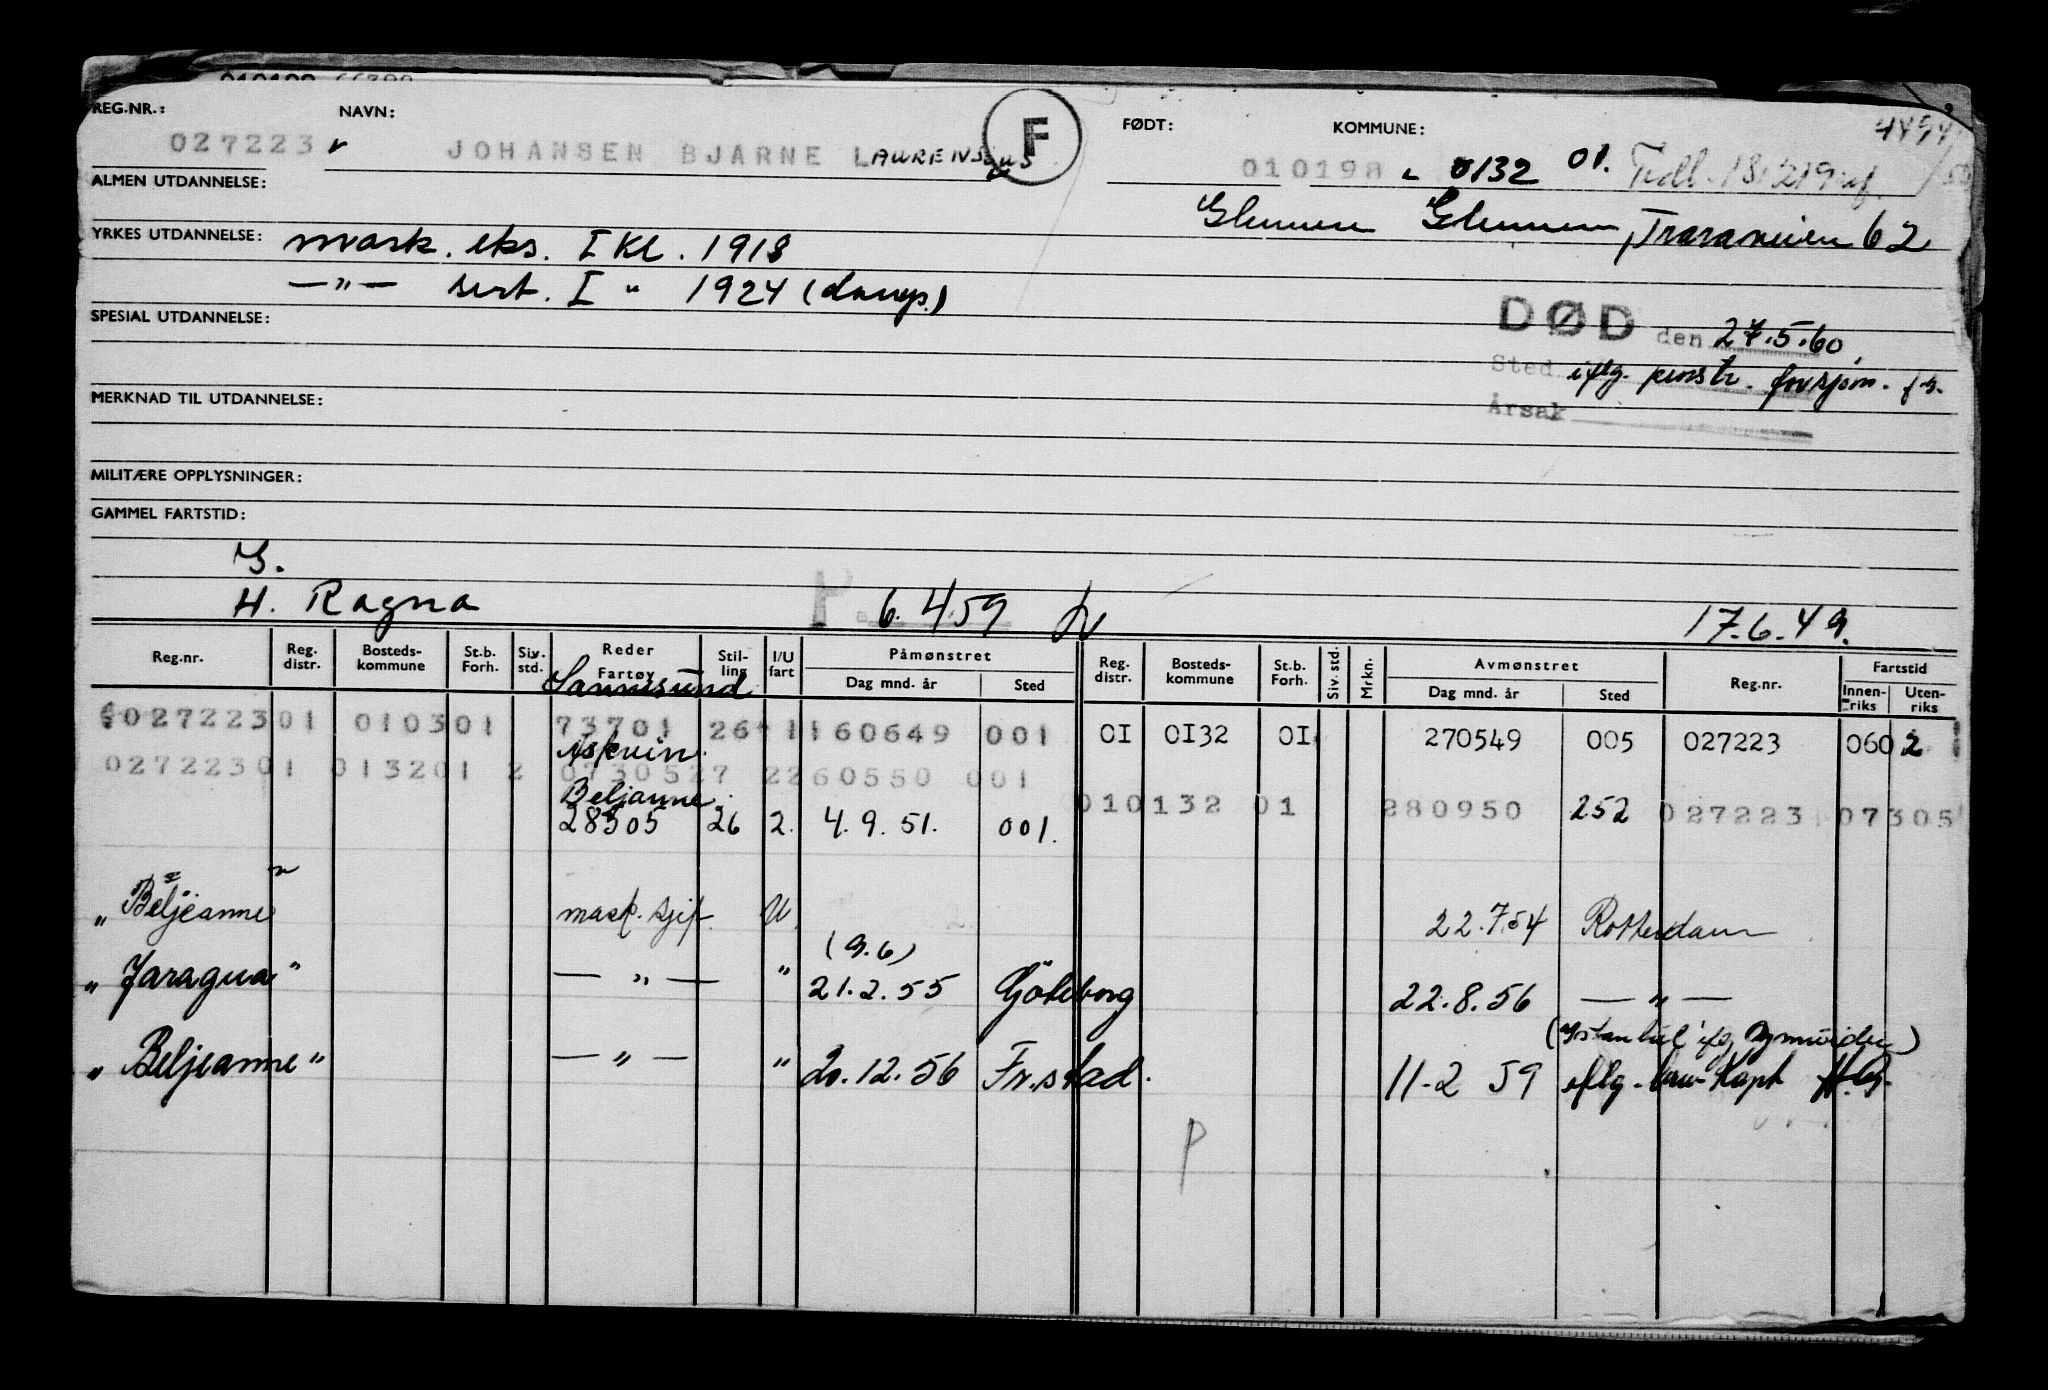 REG.NR.: NAVN: FØDT: KOMMUNE:
027223 JOHANSEN BJARNE LAURENSIUS F 010198 0132 01.
ALMEN UTDANNELSE:
Glemmen Glemmen, Traraveien 62
YRKES UTDANNELSE: mask. eks. I Kl. 1918
—"— sert. I " 1924 (damp.)
SPESIAL UTDANNELSE:
DØD den 27.5.60.
Sted iflg.
Årsak
MERKNAD TIL UTDANNELSE:
MILITÆRE OPPLYSNINGER:
GAMMEL FARTSTID:
G.
H. Ragna P 6.4.59 17.6.49.
Reg.nr. Reg. distr. Bosteds- kommune St.b. Forh. Siv. std. Reder Fartøy Stil- ling I/U fart Påmønstret Dag mnd. år Sted Reg. distr. Bosteds- kommune St.b. Forh. Siv. std. Mrkn. Avmønstret Dag mnd. år Sted Reg.nr. Fartstid Innen- riks Uten- riks
Sannesund
02722301 010301 73701 26 1 160649 001 0I 0I32 0I 270549 005 027223 060 2
Askvin.
02722301 013201 2 0730527 2260550 001
Beljanne.
010132 01 280950 252 027223 07305
28505 26 2. 4.9.51. 001.
"Beljeanne mask.sjef. U. 22.7.54 Rotterdam
(9.6)
"Jaragua" — " — " 21.2.55 Göteborg 22.8.56 — " —
(Istanbul Ymuiden)
"Beljeanne" — " — " 20.12.56 Fr.stad. 11-2 59 iflg.
P